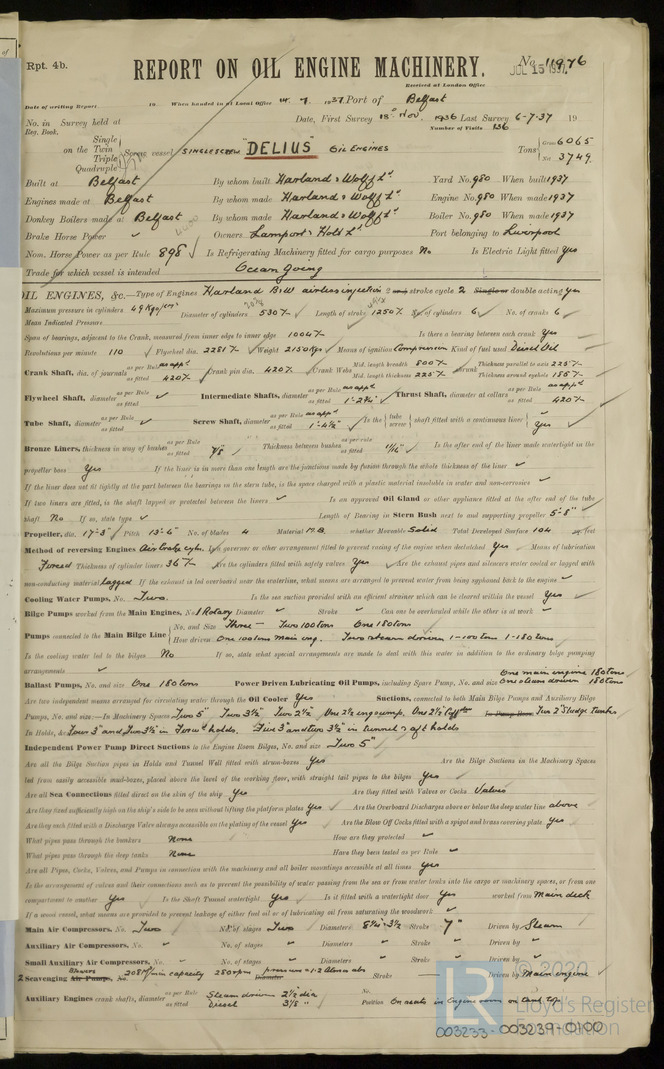 of
Rpt. 4b.
REPORT ON OIL ENGINE MACHINERY.
No. 11976
JUL 15 1937
Received at London Office
Date of writing Report 19 When handed in at Local Office 14. 7. 1937 Port of Belfast
No. in Survey held at Date, First Survey 18th Nov. 1936 Last Survey 6-7-37 19
Reg. Book. Number of Visits 136
Single
on the Twin Screw vessel SINGLE SCREW "DELIUS" OIL ENGINES Tons Gross 6065
Triple
Quadruple Net 3749
Built at Belfast By whom built Harland & Wolff Ld Yard No. 980 When built 1937
Engines made at Belfast By whom made Harland & Wolff Ld Engine No. 980 When made 1937
Donkey Boilers made at Belfast By whom made Harland & Wolff Ld Boiler No. 980 When made 1937
Brake Horse Power Owners Lamport & Holt Ld Port belonging to Liverpool
Nom. Horse Power as per Rule 898 Is Refrigerating Machinery fitted for cargo purposes No Is Electric Light fitted Yes
Trade for which vessel is intended Ocean going
OIL ENGINES, &c.—Type of Engines Harland B&W airless injection 2 or 4 stroke cycle 2 Single or double acting yes
Maximum pressure in cylinders 49 Kgs/cm² Diameter of cylinders 530 Length of stroke 1250 No. of cylinders 6 No. of cranks 6
Mean Indicated Pressure
Span of bearings, adjacent to the Crank, measured from inner edge to inner edge 1004 Is there a bearing between each crank Yes
Revolutions per minute 110 Flywheel dia. 2281 Weight 2150 Kgs Means of ignition Compression Kind of fuel used Diesel Oil
Crank Shaft, dia. of journals as per Rule as appd as fitted 420 Crank pin dia. 420 Crank Webs Mid. length breadth 800 Mid. length thickness 225 shrunk Thickness parallel to axis 225 Thickness around eyehole 185
Flywheel Shaft, diameter as per Rule as fitted Intermediate Shafts, diameter as per Rule as appd as fitted Thrust Shaft, diameter at collars as per Rule as appd as fitted 420
Tube Shaft, diameter as per Rule as fitted Screw Shaft, diameter as per Rule as appd as fitted Is the tube screw shaft fitted with a continuous liner Yes
Bronze Liners, thickness in way of bushes as per Rule as fitted 7/8" Thickness between bushes as per rule as fitted 11/16" Is the after end of the liner made watertight in the
propeller boss Yes If the liner is in more than one length are the junctions made by fusion through the whole thickness of the liner
If the liner does not fit tightly at the part between the bearings in the stern tube, is the space charged with a plastic material insoluble in water and non-corrosive
If two liners are fitted, is the shaft lapped or protected between the liners Is an approved Oil Gland or other appliance fitted at the after end of the tube
shaft No If so, state type Length of Bearing in Stern Bush next to and supporting propeller 5'-8"
Propeller, dia. 17'-3" Pitch 13'-6" No. of blades 4 Material M.B. whether Moveable Solid Total Developed Surface 104 sq. feet
Method of reversing Engines Is a governor or other arrangement fitted to prevent racing of the engine when declutched Yes Means of lubrication
Forced Thickness of cylinder liners 36 Are the cylinders fitted with safety valves Yes Are the exhaust pipes and silencers water cooled or lagged with
non-conducting material lagged If the exhaust is led overboard near the waterline, what means are arranged to prevent water from being syphoned back to the engine
Cooling Water Pumps, No. Two Is the sea suction provided with an efficient strainer which can be cleared within the vessel Yes
Bilge Pumps worked from the Main Engines, No. 1 Rotary Diameter Stroke Can one be overhauled while the other is at work
Pumps connected to the Main Bilge Line No. and Size Three — Two 100 tons One 180 tons
How driven One 100 tons main eng. Two steam driven 1-100 tons 1-180 tons
Is the cooling water led to the bilges No If so, state what special arrangements are made to deal with this water in addition to the ordinary bilge pumping
arrangements
Ballast Pumps, No. and size One 180 tons Power Driven Lubricating Oil Pumps, including Spare Pump, No. and size One main engine 180 tons One steam driven 180 tons
Are two independent means arranged for circulating water through the Oil Cooler Yes Suctions, connected to both Main Bilge Pumps and Auxiliary Bilge
Pumps, No. and size:—In Machinery Spaces Two 5" Two 3½" Two 2½" One 2½ eng. sump. One 2½ coffdm In Pump Room Two 2" Sludge tanks
In Holds, &c. Four 3" and Two 3½" in Forwd holds. Five 3" and Two 3½" in tunnel & aft holds
Independent Power Pump Direct Suctions to the Engine Room Bilges, No. and size Two 5"
Are all the Bilge Suction pipes in Holds and Tunnel Well fitted with strum-boxes Yes Are the Bilge Suctions in the Machinery Spaces
led from easily accessible mud-boxes, placed above the level of the working floor, with straight tail pipes to the bilges Yes
Are all Sea Connections fitted direct on the skin of the ship Yes Are they fitted with Valves or Cocks Valves
Are they fixed sufficiently high on the ship's side to be seen without lifting the platform plates Yes Are the Overboard Discharges above or below the deep water line above
Are they each fitted with a Discharge Valve always accessible on the plating of the vessel Yes Are the Blow Off Cocks fitted with a spigot and brass covering plate Yes
What pipes pass through the bunkers None How are they protected
What pipes pass through the deep tanks None Have they been tested as per Rule
Are all Pipes, Cocks, Valves, and Pumps in connection with the machinery and all boiler mountings accessible at all times Yes
Is the arrangement of valves and their connections such as to prevent the possibility of water passing from the sea or from water tanks into the cargo or machinery spaces, or from one
compartment to another Yes Is the Shaft Tunnel watertight Yes Is it fitted with a watertight door Yes worked from Main deck
If a wood vessel, what means are provided to prevent leakage of either fuel oil or of lubricating oil from saturating the woodwork
Main Air Compressors, No. Two No. of stages Two Diameters 8¼-3½ Stroke 7" Driven by Steam
Auxiliary Air Compressors, No. No. of stages Diameters Stroke Driven by
Small Auxiliary Air Compressors, No. No. of stages Diameters Stroke Driven by
2 Scavenging Air Pumps, No. Blowers 208 M³/min capacity 280 rpm Diameter pressure = 1.2 Atmos abs Stroke Driven by Main engine
Auxiliary Engines crank shafts, diameter as per Rule as fitted Steam driven 2½ dia Diesel 3⅛" No. Position On seats in Engine room on tank top
© 2020
LR
Lloyd's Register
Foundation
003233-003239-0100